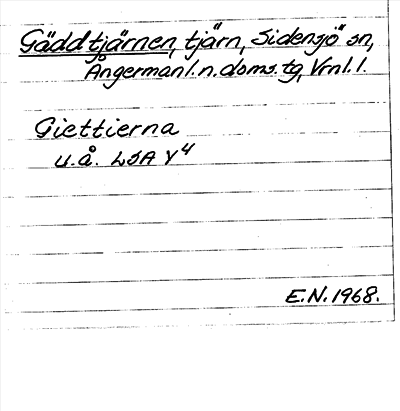 Gäddtjärnen, tjärn, Sidensjö sn,
Ångermanl.n.doms.tg, Vrnl.l.
Giettierna
u.å. LSA Y4
E.N.1968.